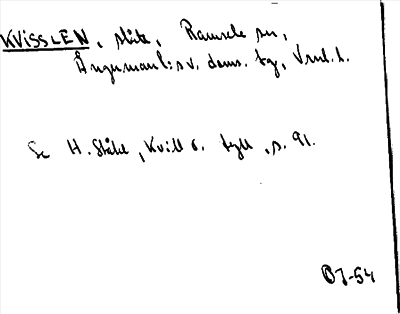 KVISSLEN, slåtr, Ramsele sn,
Ångermanl:s v. doms. tg, Vrnl. l.
Se H. Ståhl, Kvill o. tyll, s. 91.
OJ-54